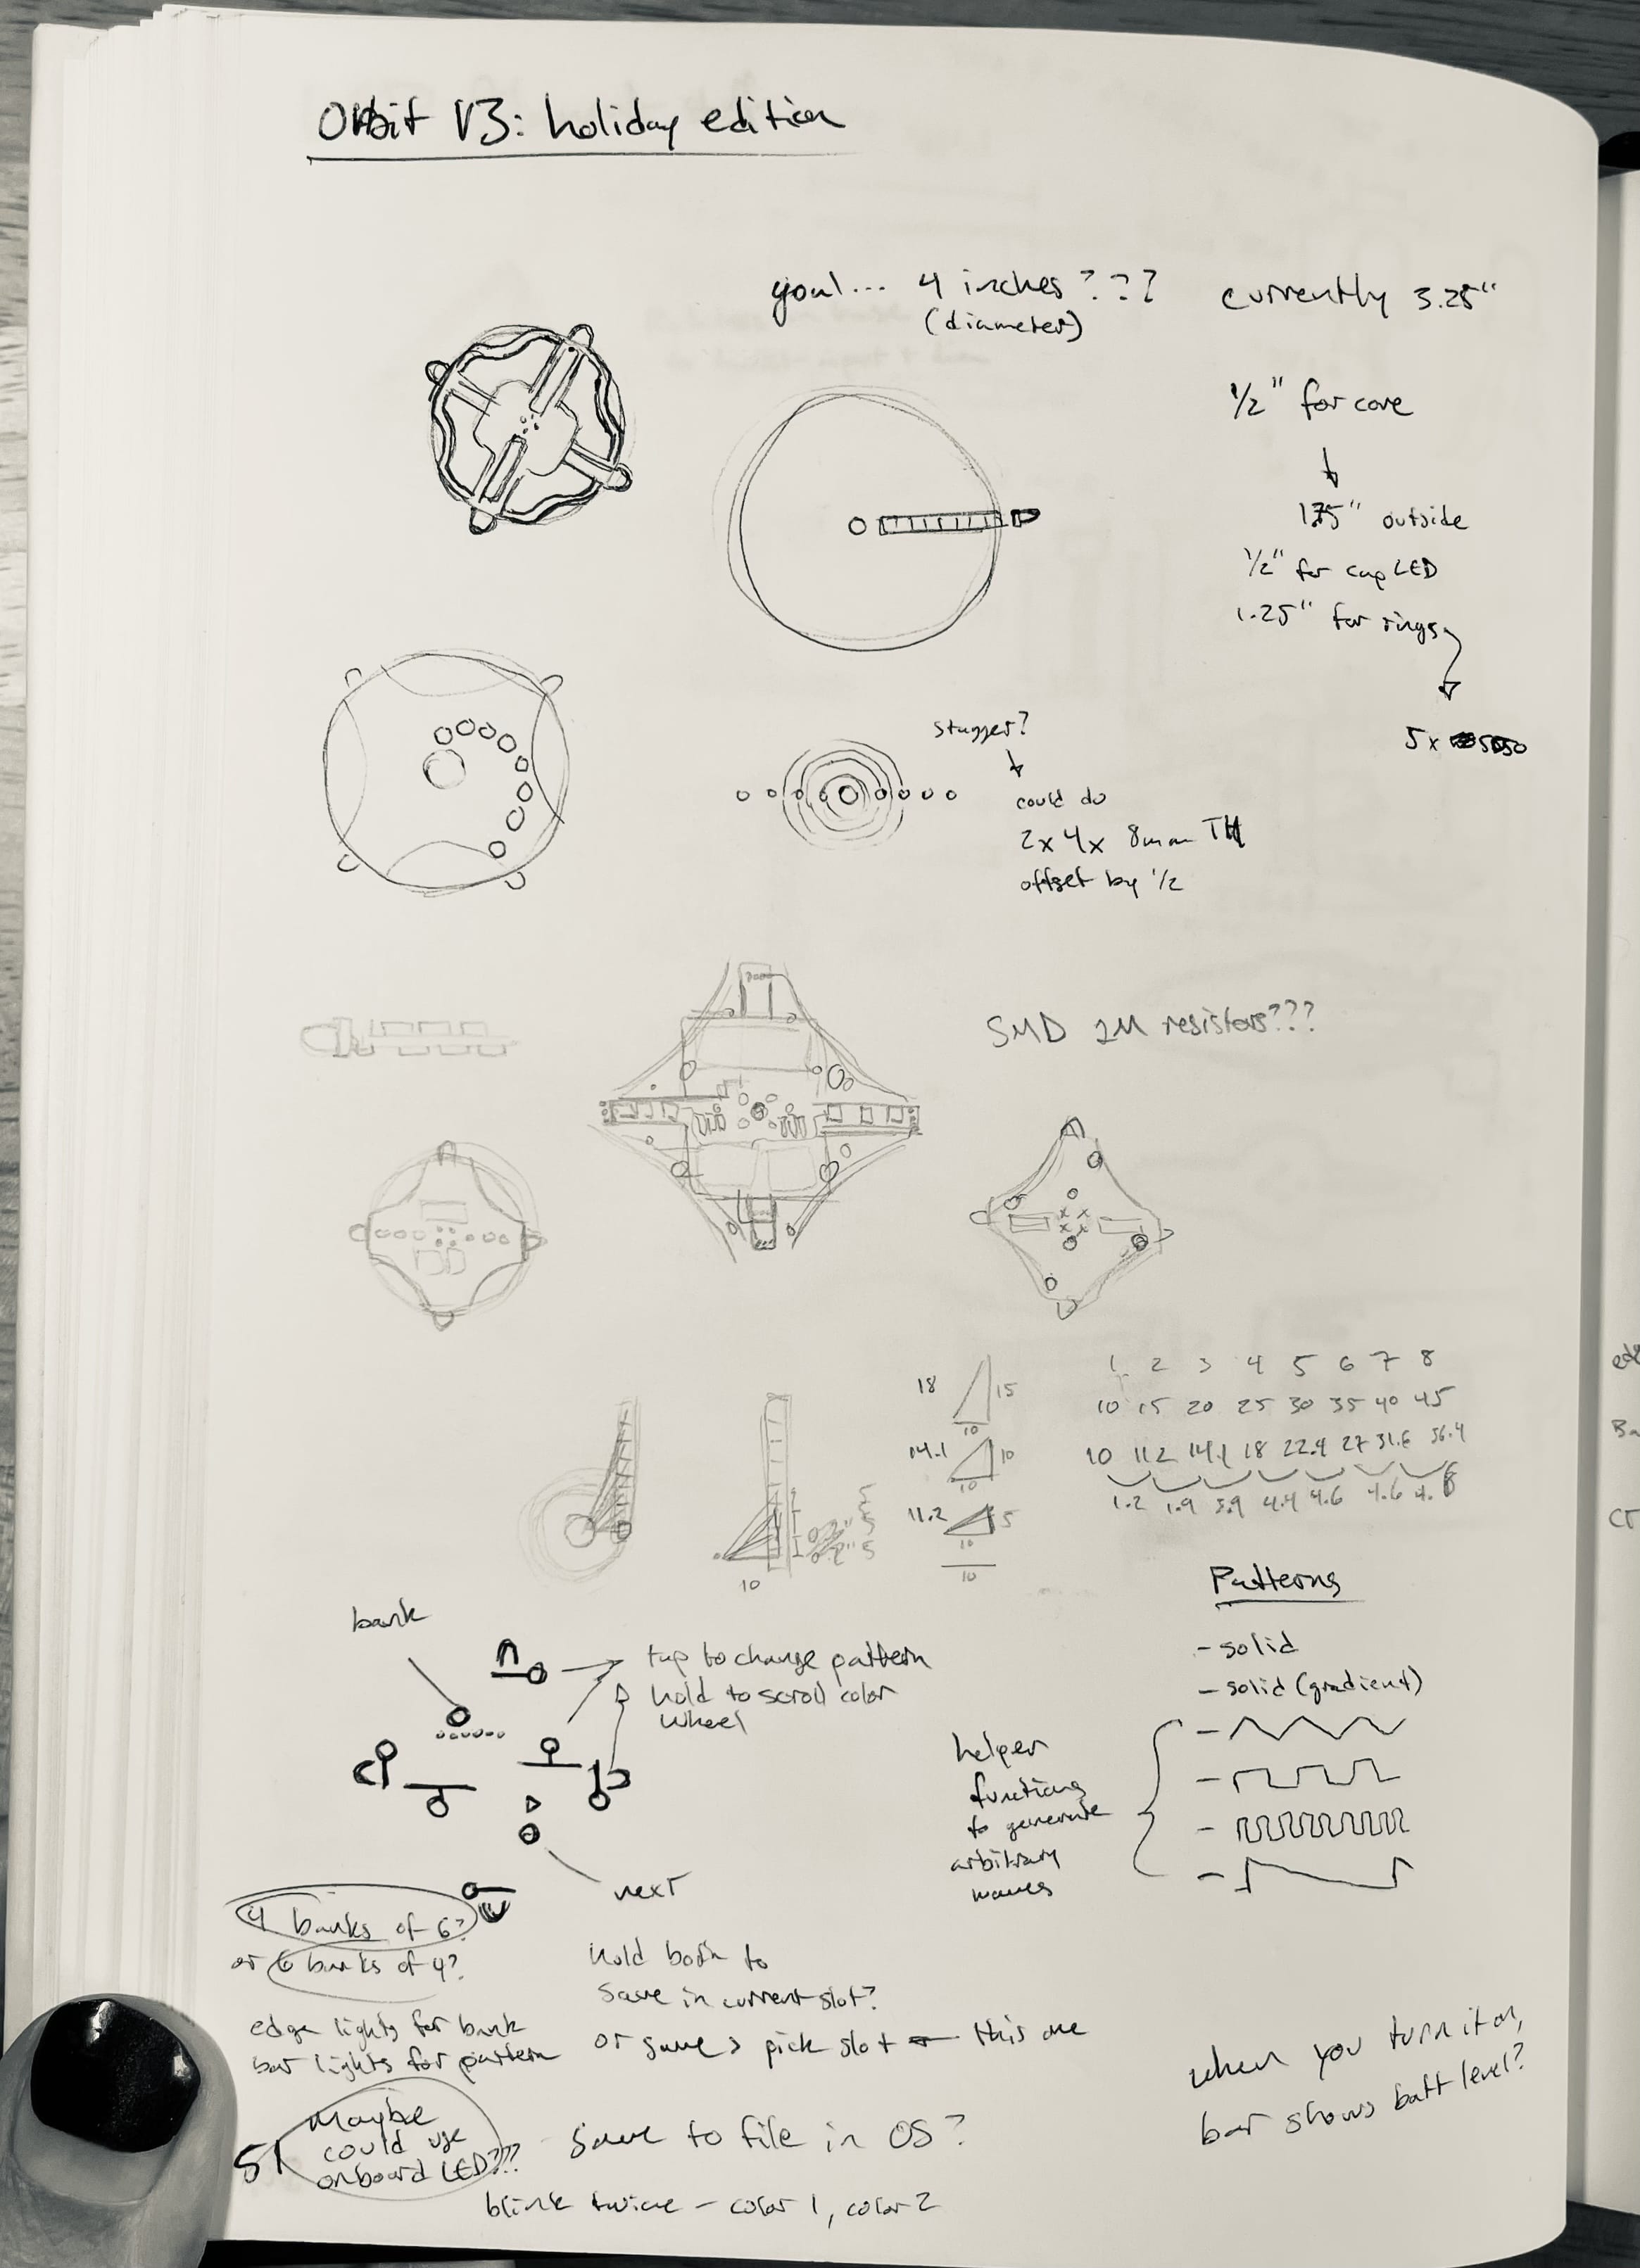 Orbit V3: holiday edition
goal... 4 inches???
(diameter)
currently 3.25"
1/2" for core
1.75" outside
1/2" for cap LED
1.25" for rings
5x 5050
stagger?
could do
2x 4x 8mm TH
offset by 1/2
SMD 1M resistors???
18 15
10
14.1 10
10
11.2 5
10
10
10
1 2 3 4 5 6 7 8
10 15 20 25 30 35 40 45
10 11.2 14.1 18 22.4 27 31.6 36.4
1.2 1.9 3.9 4.4 4.6 4.6 4.8
bank
tap to change pattern
hold to scroll color
wheel
next
Patterns
- solid
- solid (gradient)
helper
functions
to generate
arbitrary
waves
4 banks of 6?
or 6 banks of 4?
edge lights for bank
bar lights for pattern
hold both to
save in current slot?
or save > pick slot ← this one
when you turn it on,
bar shows batt level?
Maybe
could use
onboard LED???
save to file in OS?
blink twice - color 1, color 2